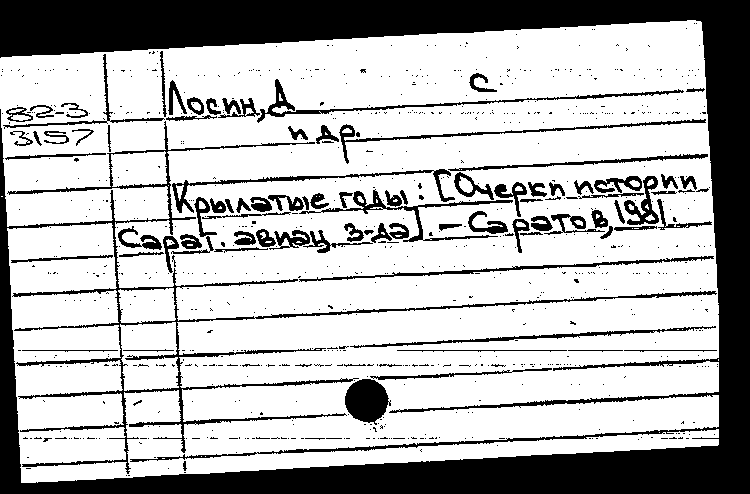 С
82-3
3157
Лосин, Д
и др.
Крылатые годы: [Очерки истории
Сарат. авиац. з-да]. – Саратов, 1981.